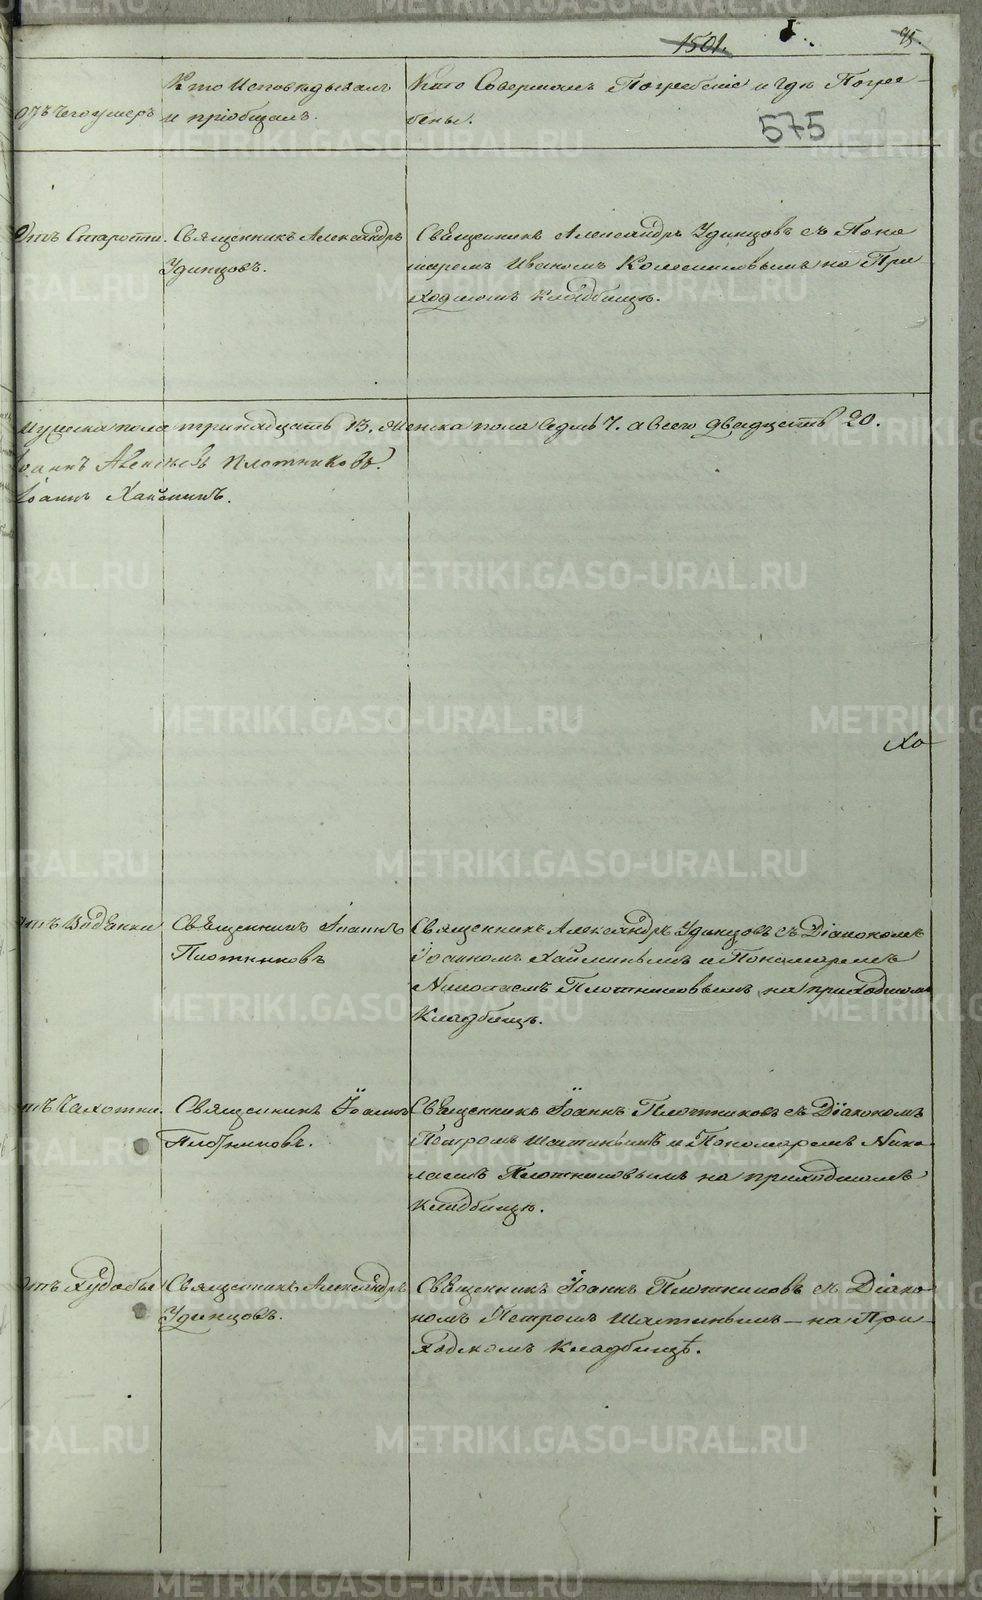 1501. 95.
575
Отъ чего умеръ
Кто Исповѣдывалъ
и пріобщалъ.
Кто Совершалъ Погребеніе и гдѣ Погре-
бены.
Отъ Старости.
Священникъ Александръ
Удинцовъ.
Священникъ Александръ Удинцовъ съ Поно
маремъ Иваномъ Колесниковымъ на При
ходскомъ кладбищѣ.
мужеска пола тринадцать 13. женска пола седмь 7. а всего двадцать 20.
Іоаннъ Алексѣевъ Плотниковъ.
Іоаннъ Хайминъ.
Хо
Священникъ Іоаннъ
Плотниковъ
Священникъ Александръ Удинцовъ съ Діакономъ
Іоанномъ Хайминымъ и Пономаремъ
Николаемъ Плотниковымъ на приходскомъ
Кладбищѣ.
отъ Чахотки.
Священникъ Іоаннъ
Плотниковъ.
Священникъ Іоаннъ Плотниковъ съ Діакономъ
Петромъ Шастинымъ и Пономаремъ Нико
лаемъ Плотниковымъ на приходскомъ
Кладбищѣ.
Отъ Худобы
Священникъ Александръ
Удинцовъ.
Священникъ Іоаннъ Плотниковъ съ Діако-
номъ Петромъ Шастинымъ — на При-
ходскомъ кладбищѣ.
METRIKI.GASO-URAL.RU